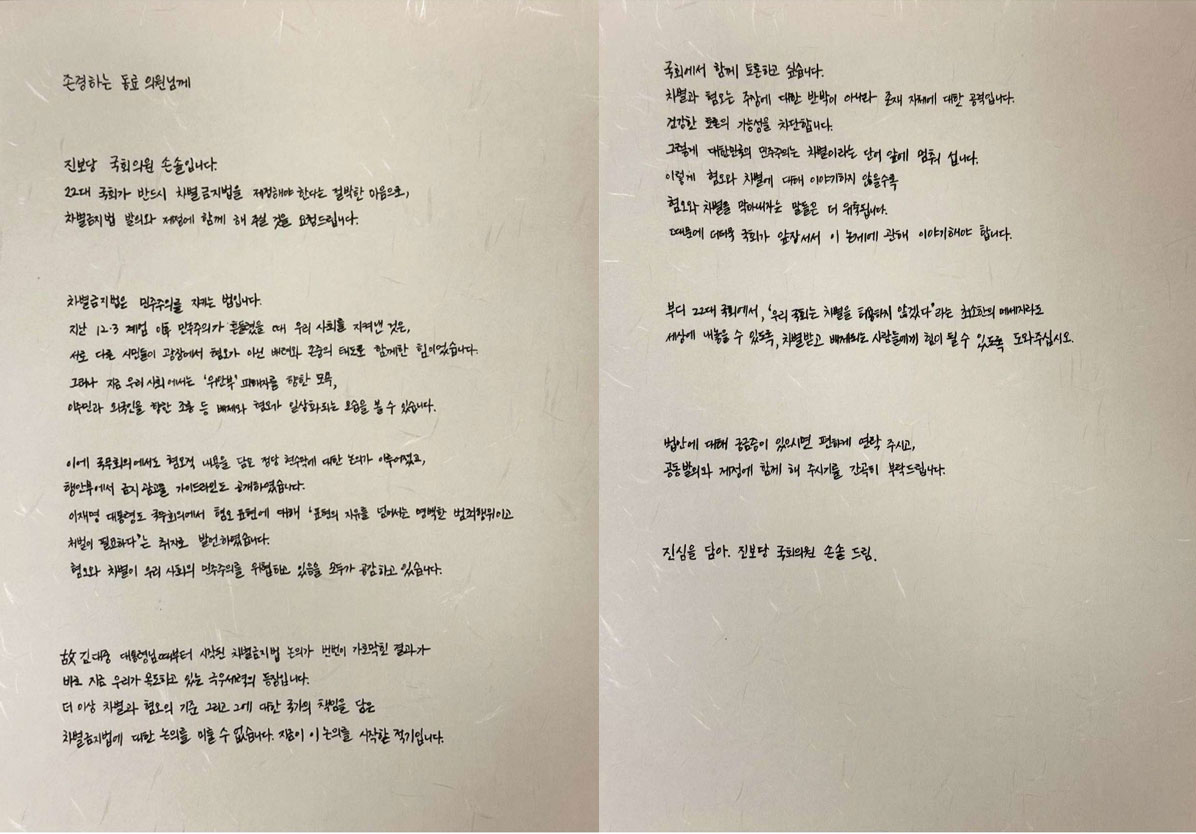 존경하는 동료 의원님께
진보당 국회의원 손솔입니다.
22대 국회가 반드시 차별금지법을 제정해야 한다는 절박한 마음으로,
차별금지법 발의와 제정에 함께 해 주실 것을 요청드립니다.
차별금지법은 민주주의를 지키는 법입니다.
지난 12·3 계엄 이후 민주주의가 흔들렸을 때 우리 사회를 지켜낸 것은,
서로 다른 시민들이 광장에서 혐오가 아닌 배려와 존중의 태도로 함께한 힘이었습니다.
그러나 지금 우리 사회에서는 '위안부' 피해자를 향한 모욕,
이주민과 외국인을 향한 조롱 등 배제와 혐오가 일상화되는 모습을 볼 수 있습니다.
이에 국무회의에서도 혐오적 내용을 담은 정당 현수막에 대한 논의가 이루어졌고,
행안부에서 금지광고물 가이드라인도 공개하였습니다.
이재명 대통령도 국무회의에서 혐오 표현에 대해 '표현의 자유를 넘어서는 명백한 범죄행위이고
처벌이 필요하다'는 취지로 발언하였습니다.
혐오와 차별이 우리 사회의 민주주의를 위협하고 있음을 모두가 공감하고 있습니다.
故 김대중 대통령님 때부터 시작된 차별금지법 논의가 번번이 가로막힌 결과가
바로 지금 우리가 목도하고 있는 극우세력의 등장입니다.
더 이상 차별과 혐오의 기준 그리고 그에 대한 국가의 책임을 담은
차별금지법에 대한 논의를 미룰 수 없습니다. 지금이 이 논의를 시작할 적기입니다.
국회에서 함께 토론하고 싶습니다.
차별과 혐오는 주장에 대한 반박이 아니라 존재 자체에 대한 공격입니다.
건강한 토론의 가능성을 차단합니다.
그렇게 대한민국의 민주주의는 차별이라는 단어 앞에 멈춰 섭니다.
이렇게 혐오와 차별에 대해 이야기하지 않을수록
혐오와 차별을 막아내자는 말들은 더 위축됩니다.
때문에 더더욱 국회가 앞장서서 이 논제에 관해 이야기해야 합니다.
부디 22대 국회에서, '우리 국회는 차별을 허용하지 않겠다'라는 최소한의 메세지라도
세상에 내놓을 수 있도록, 차별받고 배제되는 사람들에게 힘이 될 수 있도록 도와주십시오.
법안에 대해 궁금증이 있으시면 편하게 연락 주시고,
공동발의와 제정에 함께 해 주시기를 간곡히 부탁드립니다.
진심을 담아. 진보당 국회의원 손솔 드림.